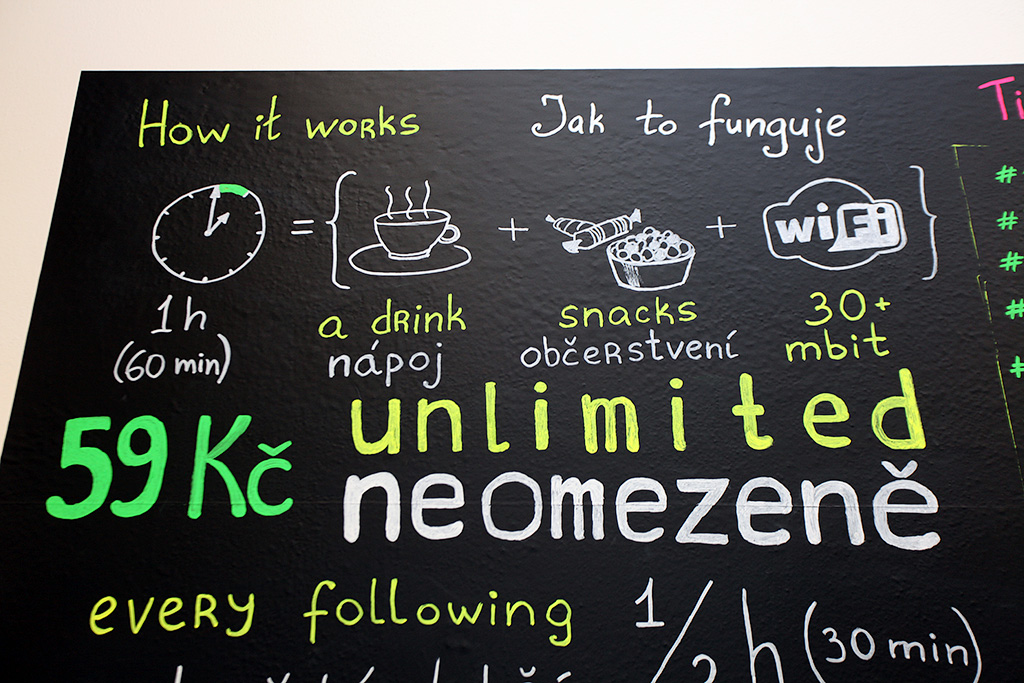 How it works
Jak to funguje
= { + + WiFi }
1h
(60 min)
a drink
nápoj
snacks
občerstvení
30+
mbit
59 Kč
unlimited
neomezeně
every following 1/2 h (30 min)
#
#
#
#
#